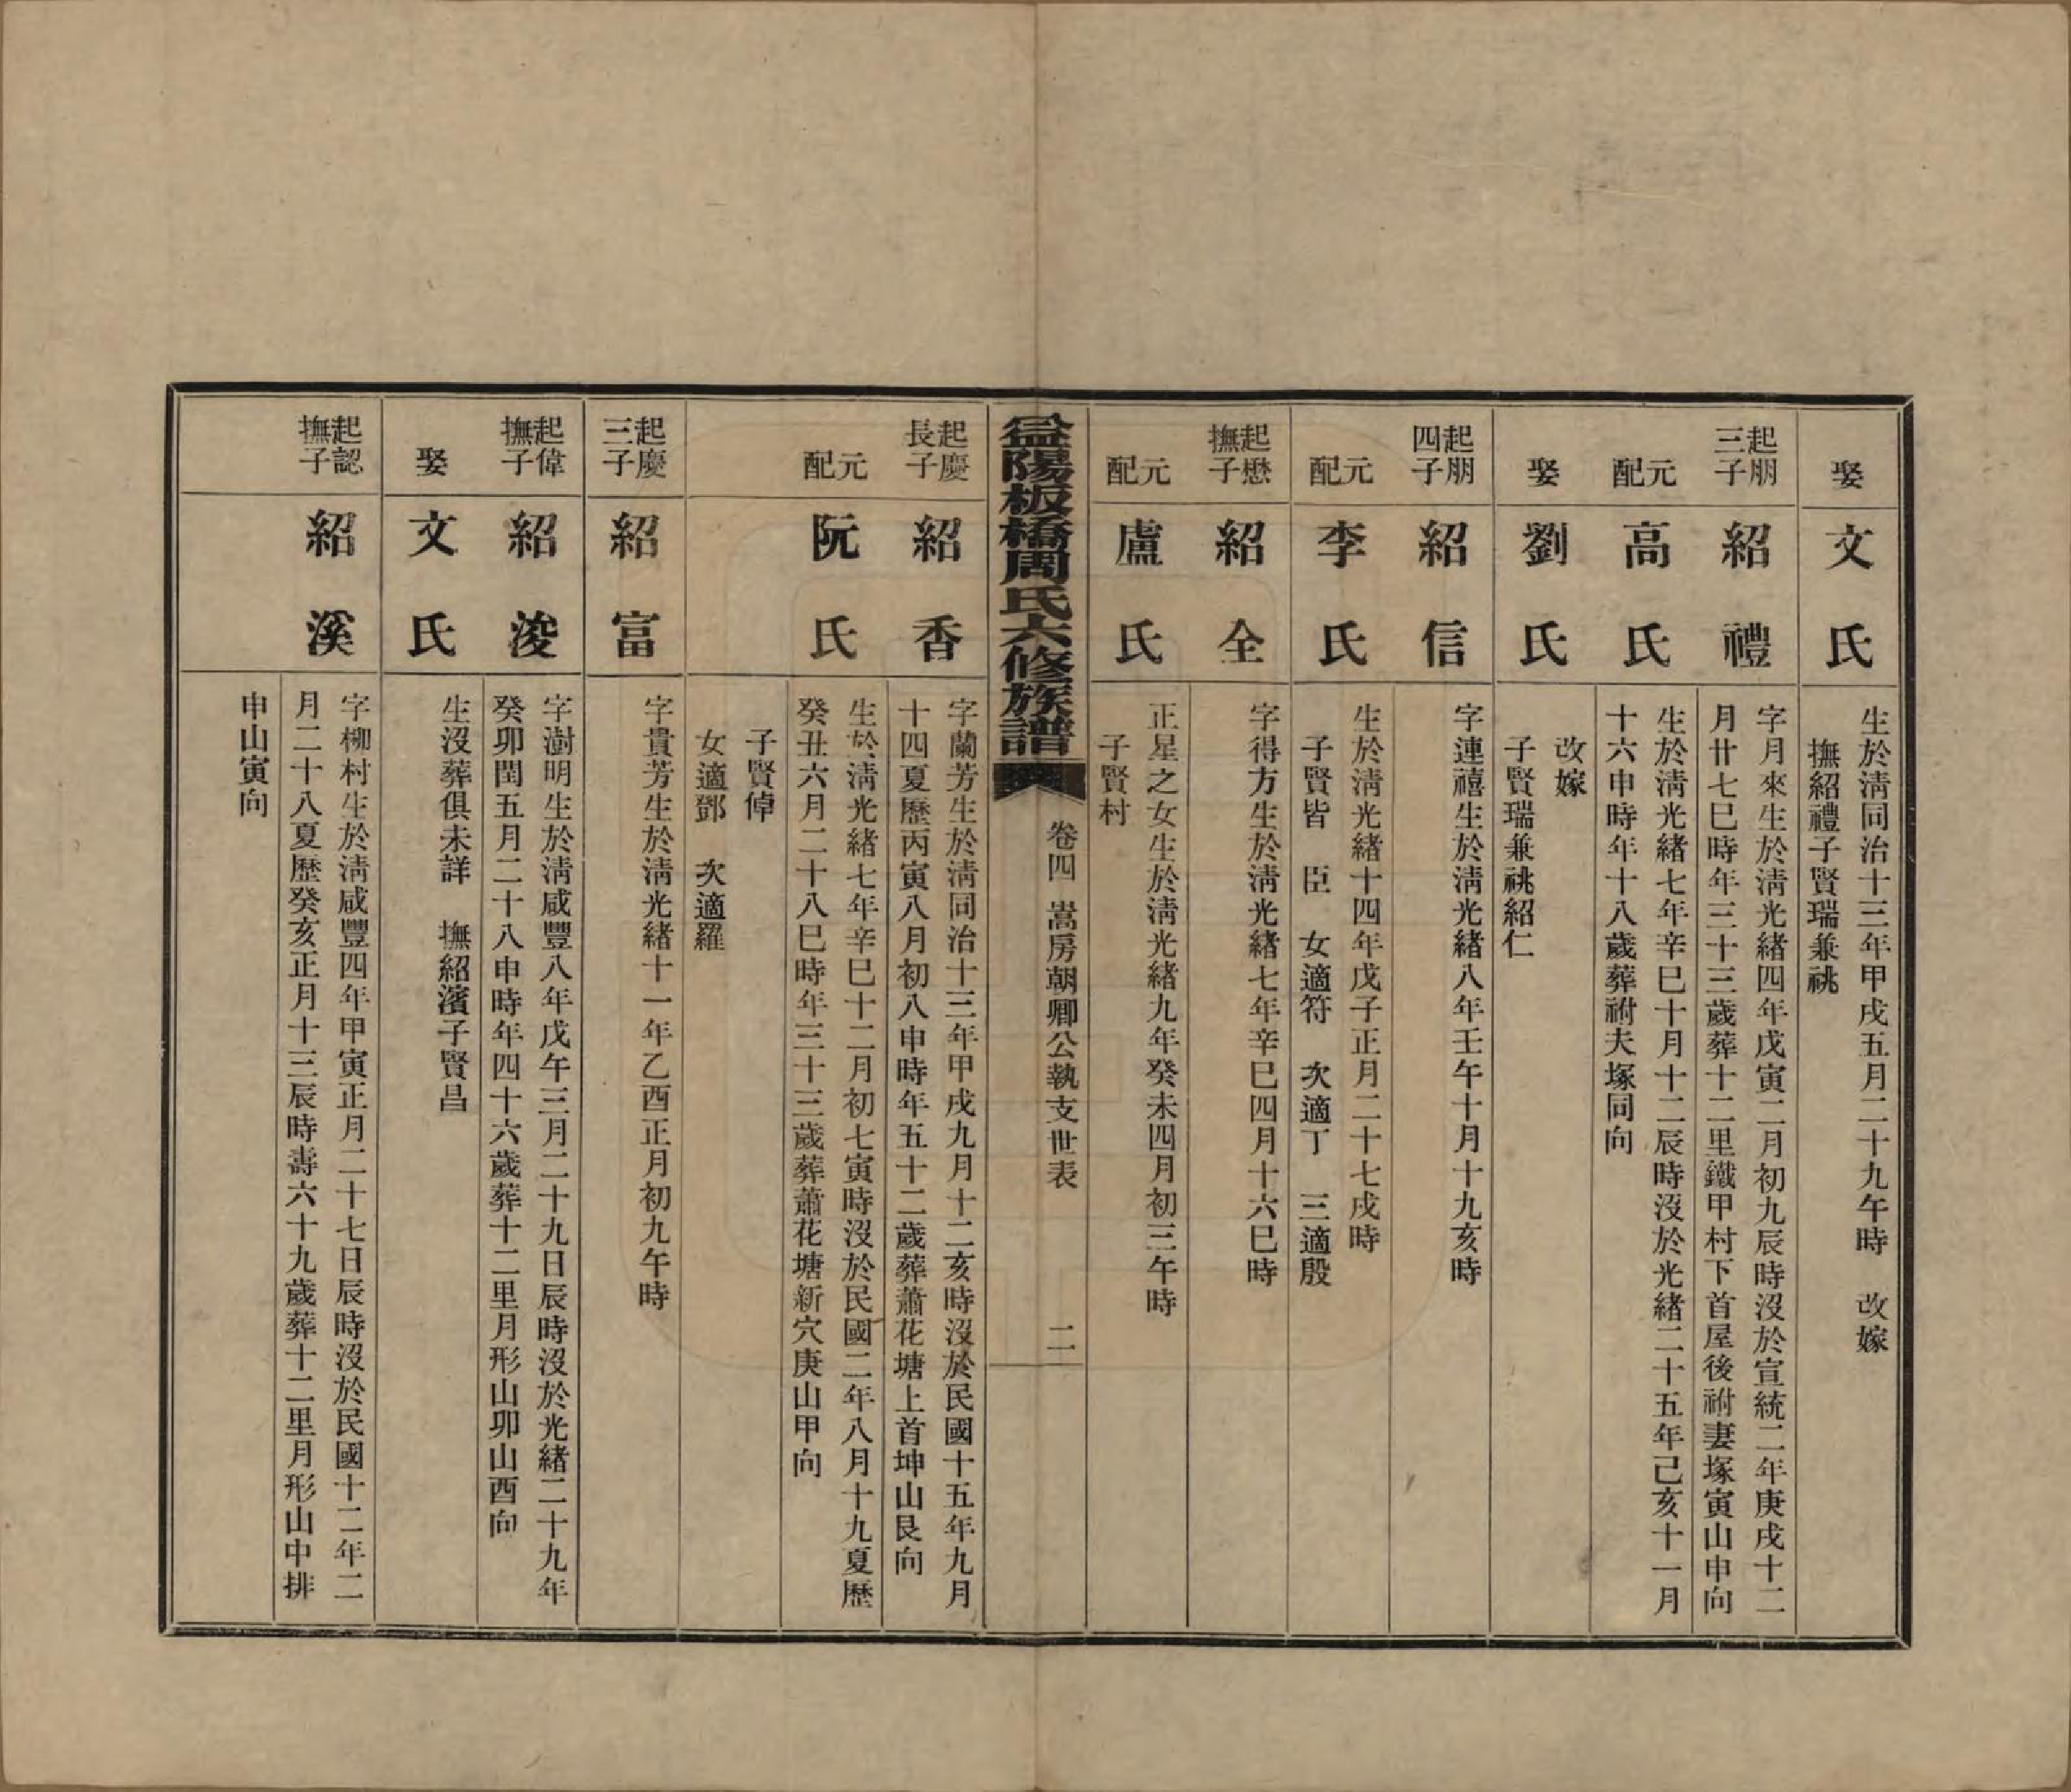 娶
文氏
生於淸同治十三年甲戌五月二十九午時　改嫁
撫紹禮子賢瑞兼祧
起朋
三子
紹禮
字月來生於淸光緒四年戊寅二月初九辰時沒於宣統二年庚戌十二
月廿七巳時年三十三歲葬十二里鐵甲村下首屋後祔妻塚寅山申向
元
配
高氏
生於淸光緒七年辛巳十月十二辰時沒於光緒二十五年己亥十一月
十六申時年十八歲葬祔夫塚同向
娶
劉氏
改嫁
子賢瑞兼祧紹仁
起朋
四子
紹信
字連禧生於淸光緒八年壬午十月十九亥時
元
配
李氏
生於淸光緒十四年戊子正月二十七戌時
子賢皆　臣　女適符　次適丁　三適殷
起懋
撫子
紹全
字得方生於淸光緒七年辛巳四月十六巳時
元
配
盧氏
正星之女生於淸光緒九年癸未四月初三午時
子賢村
益陽板橋周氏六修族譜
卷四　嵩房朝卿公執支世表　二
起慶
長子
紹香
字蘭芳生於淸同治十三年甲戌九月十二亥時沒於民國十五年九月
十四夏歷丙寅八月初八申時年五十二歲葬蕭花塘上首坤山艮向
元
配
阮氏
生於淸光緒七年辛巳十二月初七寅時沒於民國二年八月十九夏歷
癸丑六月二十八巳時年三十三歲葬蕭花塘新穴庚山甲向
子賢倬
女適鄧　次適羅
起慶
三子
紹富
字貴芳生於淸光緒十一年乙酉正月初九午時
起偉
撫子
紹浚
字澍明生於淸咸豐八年戊午三月二十九日辰時沒於光緒二十九年
癸卯閏五月二十八申時年四十六歲葬十二里月形山卯山酉向
娶
文氏
生沒葬俱未詳　撫紹濱子賢昌
起認
撫子
紹溪
字柳村生於淸咸豐四年甲寅正月二十七日辰時沒於民國十二年二
月二十八夏歷癸亥正月十三辰時壽六十九歲葬十二里月形山中排
申山寅向